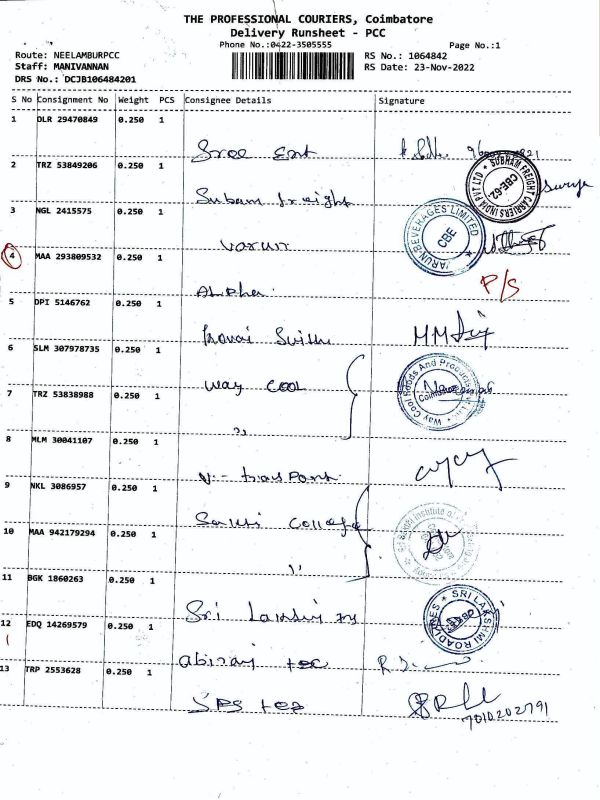 THE PROFESSIONAL COURIERS, Coimbatore
Delivery Runsheet - PCC
Phone No.:0422-3505555
Page No.:1
Route: NEELAMBURPCC
RS No.: 1064842
Staff: MANIVANNAN
RS Date: 23-Nov-2022
DRS No.: DCJB106484201
S No Consignment No Weight PCS Consignee Details Signature
1 DLR 29470849 0.250 1
Sree Ent
2 TRZ 53849206 0.250 1
Subam freight
SUBHAM FREIGHT CARRIERS INDIA PVT LTD
CBE-62
Surya
3 NGL 2415575 0.250 1
Varun
VARUN BEVERAGES LIMITED
CBE
4 MAA 293809532 0.250 1
P/S
5 DPI 5146762 0.250 1
Kovai
6 SLM 307978735 0.250 1
Way Cool
Way Cool Foods And
7 TRZ 53838988 0.250 1
"
8 MLM 30041107 0.250 1
V-
9 NKL 3086957 0.250 1
College
Institute of
10 MAA 942179294 0.250 1
"
11 BGK 1860263 0.250 1
Sri
SRI LAKSHMI ROADLINES
12 EDQ 14269579 0.250 1
abiraj tec
13 TRP 2553628 0.250 1
SPS tec
7010202791